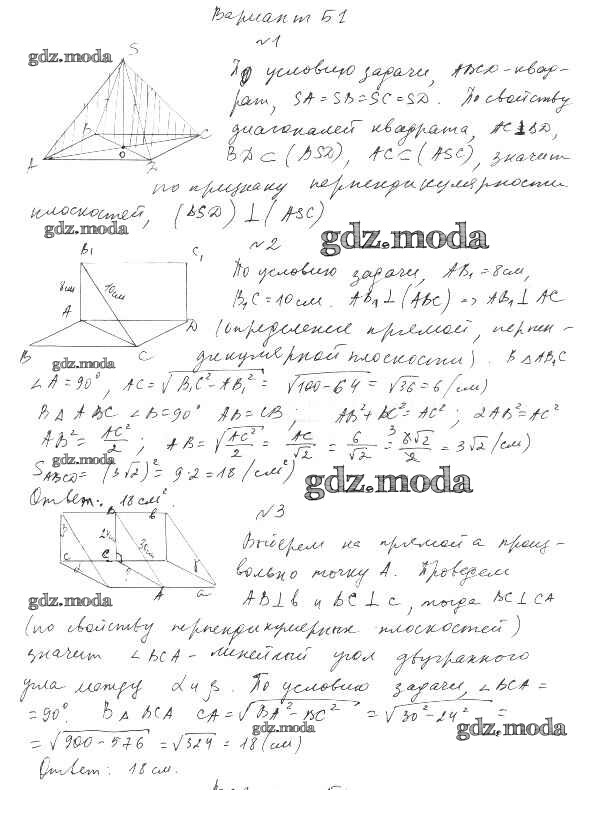 Вариант Б1
№1
gdz.moda
S
A
B
C
D
O
По условию задачи, ABCD - квад-
рат, SA = SB = SC = SD. По свойству
диагоналей квадрата, AC ⊥ BD,
BD ⊂ (BSD), AC ⊂ (ASC), значит
по признаку перпендикулярности
плоскостей, (BSD) ⊥ (ASC)
gdz.moda
№2
gdz.moda
B₁
C₁
8см
10см
A
D
B
C
По условию задачи, AB₁ = 8см,
B₁C = 10см. AB₁ ⊥ (ABC) => AB₁ ⊥ AC
(определение прямой, перпен-
дикулярной плоскости). В △AB₁C
gdz.moda
∠A = 90°, AC = √B₁C² - AB₁² = √100 - 64 = √36 = 6 (см)
В △ABC ∠B = 90° AB = CB; AB² + BC² = AC²; 2AB² = AC²
AB² = AC²/2; AB = √AC²/2 = AC/√2 = 6/√2 = 6√2/2 = 3√2 (см)
gdz.moda
S ABCD = (3√2)² = 9·2 = 18 (см²)
gdz.moda
Ответ: 18 см².
№3
B
b
C
c
d
A
a
Выберем на прямой a произ-
вольно точку A. Проведем
AB ⊥ b и BC ⊥ c, тогда BC ⊥ CA
gdz.moda
(по свойству перпендикулярных плоскостей)
значит ∠BCA - линейный угол двугранного
угла между α и β. По условию задачи, ∠BCA =
= 90°. В △BCA CA = √BA² - BC² = √30² - 24² =
gdz.moda
gdz.moda
= √900 - 576 = √324 = 18 (см)
Ответ: 18 см.